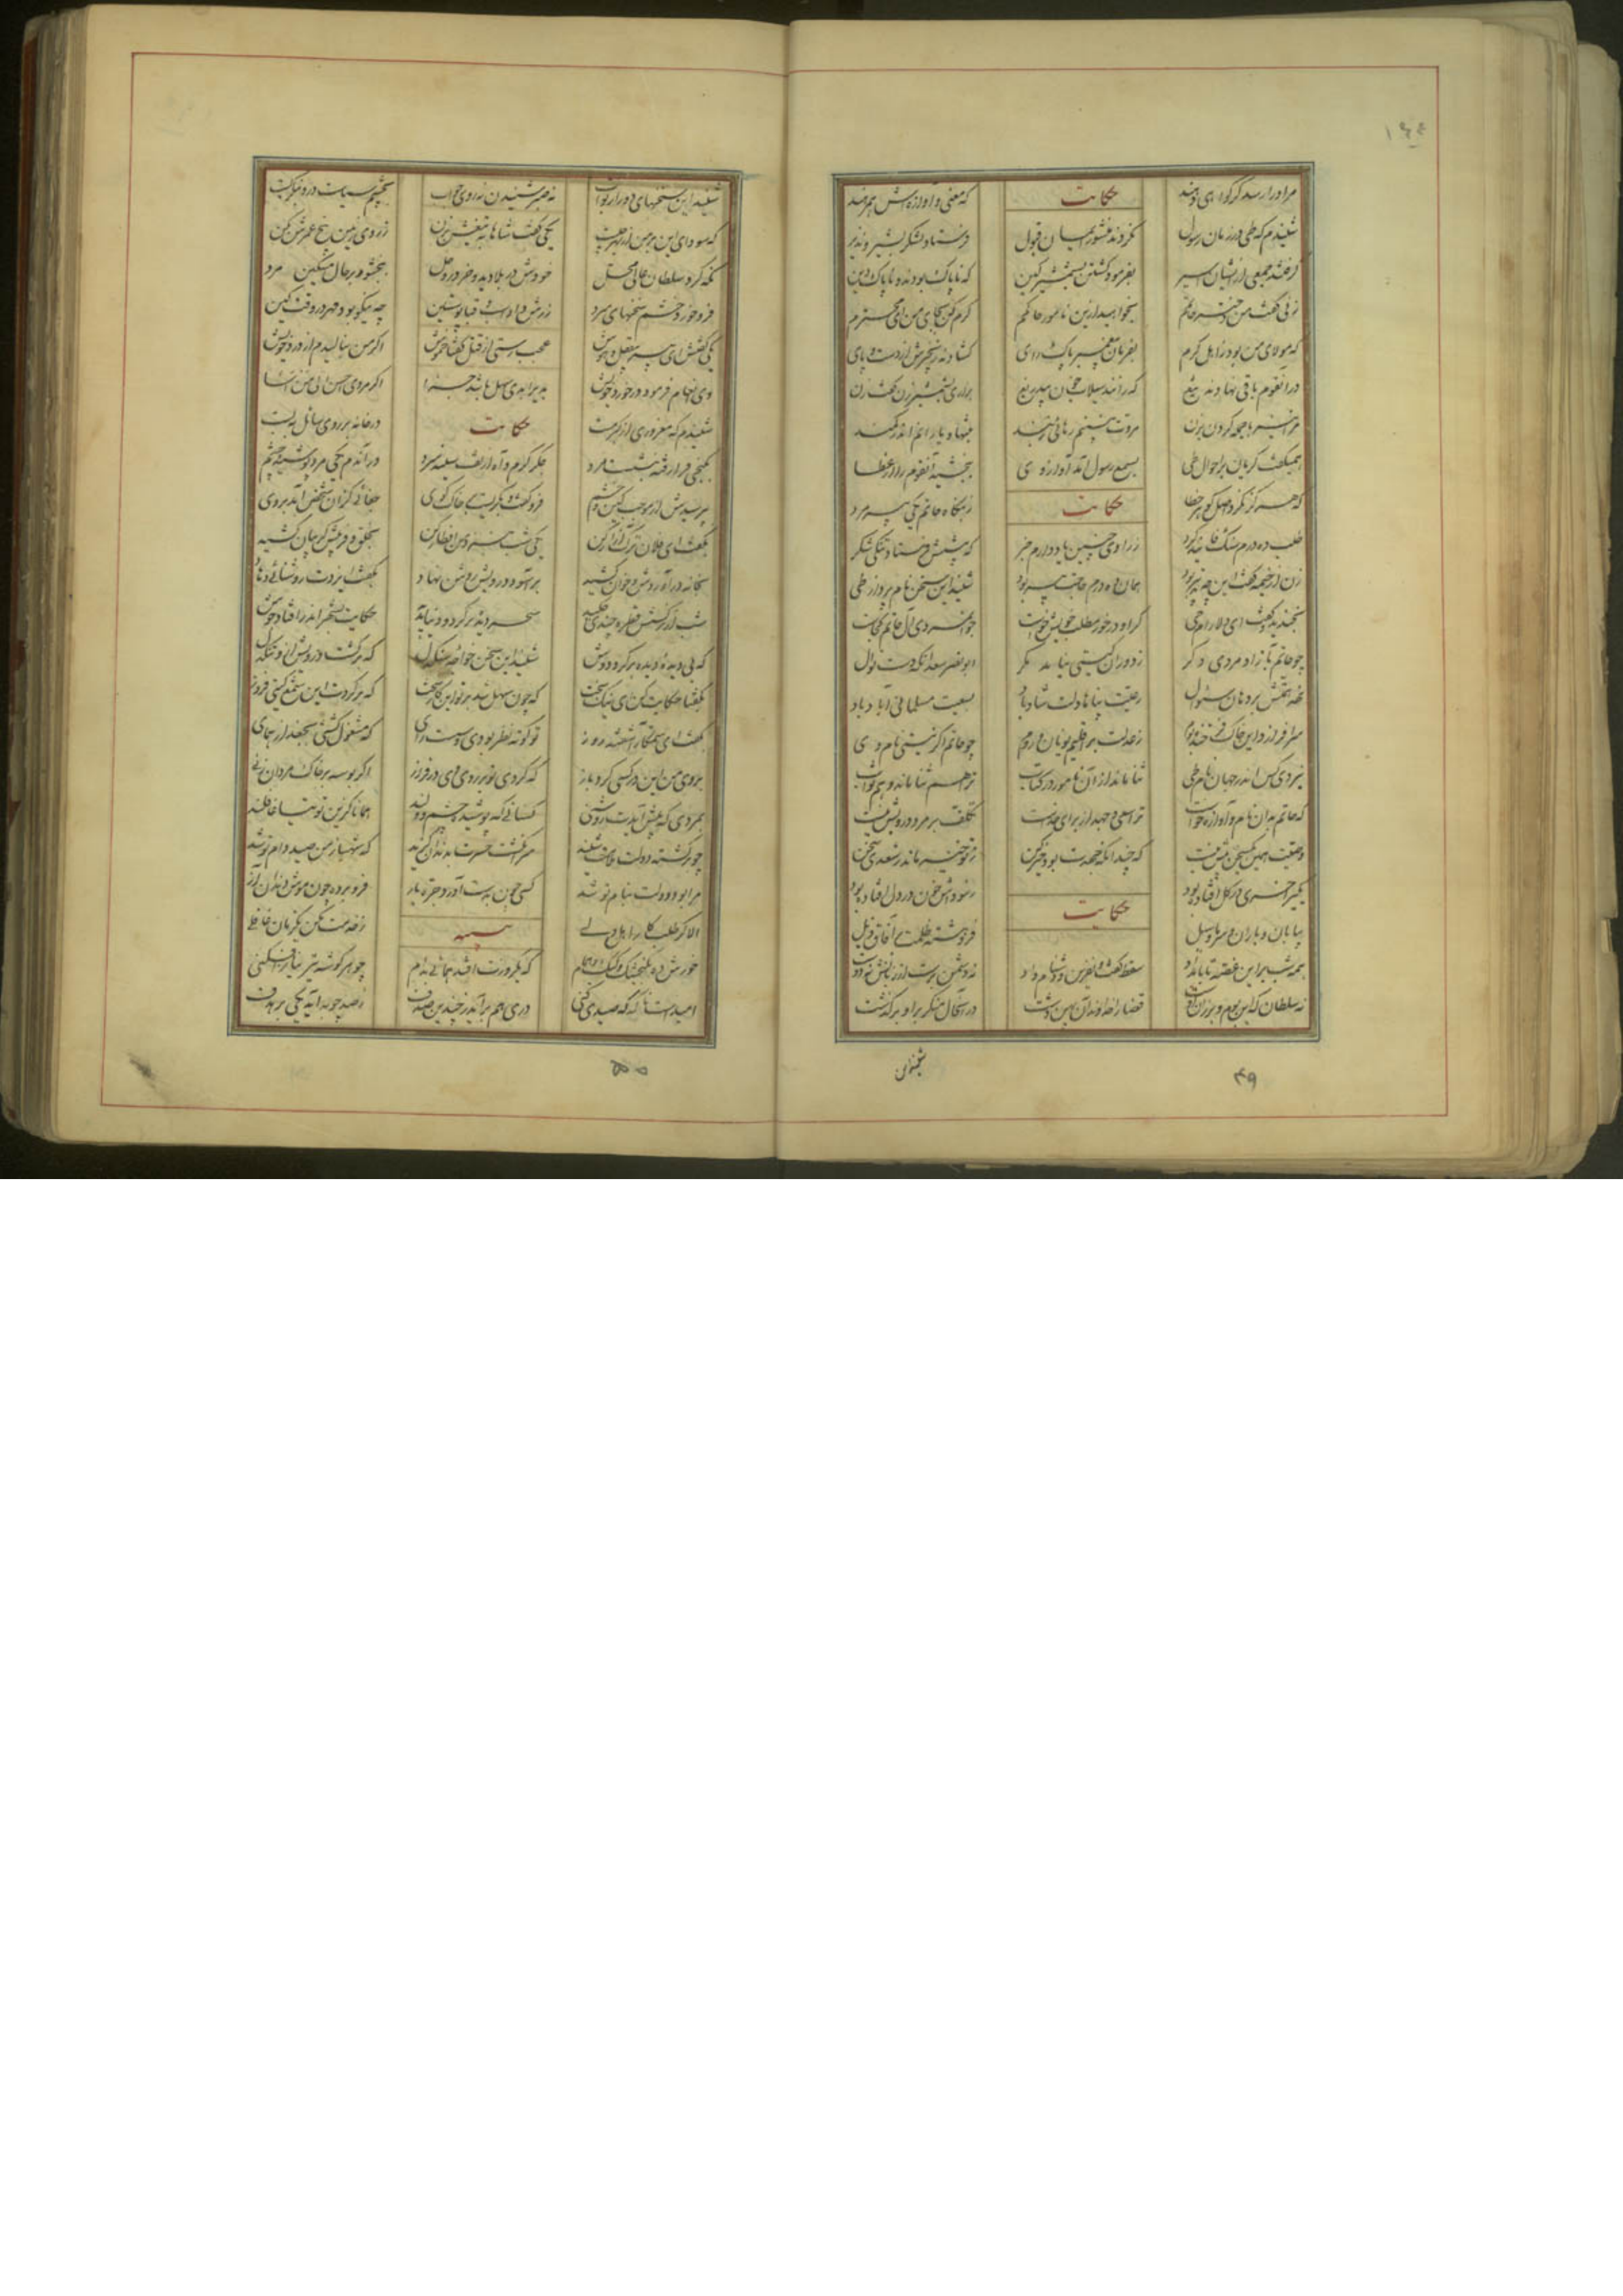 مرا او را رسد گر گواهی دهند حکایت که معنی و آوازه اش همرهند
شنیدم که طی در زمان رسول نکردند منشور ایمان قبول فرستاد لشکر بشیر و نذیر
گرفتند جمعی از ایشان اسیر بفرمود کشتن بشمشیر کین که ناپاک بودند و ناپاک دین
زنی گفت من دختر حاتمم بخواهید ازین نامور حاکمم کرم کن بجای من ای محترم
که مولای من بود ز اهل کرم بفرمان پیغمبر پاک رای گشادند زنجیرش از دست و پای
در آنقوم باقی نهادند تیغ که رانند سیلاب خون بیدریغ بزاری بشمشیر زن گفت زن
مرا نیز با جمله گردن بزن مروت نبینم رهائی ز بند بتنها و یارانم اندر کمند
همیگفت گریان بر احوال طی بسمع رسول آمد آواز وی ببخشید آنقوم را از عطا
که هرگز نکرد اصل گوهر خطا حکایت ز بنگاه حاتم یکی پیرمرد
طلب ده درم سنگ فانید کرد ز راوی چنین یاد دارم خبر که پیشش فرستاد تنگی شکر
زن از خیمه گفت این چه تدبیر بود همان ده درم حاجت پیر بود شنید این سخن نام بردار طی
بخندید و گفت ای دلارام حی گر او درخور مطلب خویش خواست جوانمردی آل حاتم کجاست
چو حاتم بآزاد مردی دگر ز دوران گیتی نیامد مگر ابونصر سعد آنکه دست نوال
نهد همتش بر دهان سئوال رعیت پناها دلت شاد باد بسعیت مسلمانی آباد باد
سرافرازد این خاک فرخنده بوم ز عدلت بر اقلیم یونان و روم چو حاتم اگر نیستی نام وی
نبردی کس اندر جهان نام طی ثنا ماند از آن نامور در کتاب ترا هم ثنا ماند و هم ثواب
که حاتم بدان نام و آوازه خواست ترا سعی و جهد از برای خداست تکلف بر مرد درویش نیست
وصیت همین یکسخن بیش نیست که چندانکه جهدت بود خیر کن ز تو خیر ماند ز سعدی سخن
یکیرا خری در گل افتاده بود حکایت ز سوداش خون در دل افتاده بود
بیابان و باران و سرما و سیل فروهشته ظلمت بر آفاق ذیل
همه شب بر این غصه تا بامداد سقط گفت و نفرین و دشنام داد نه دشمن برست از زبانش نه دوست
نه سلطان که این بوم و بر زان اوست قضا را خداوند آن پهن دشت در آنحال منکر بر او برگذشت
۴۹
شنید این سخنهای دور از صواب نه صبر شنیدن نه روی جواب بچشم سیاست درو بنگریست
که سودای این بر من از بهر چیست یکی گفت شاها به تیغش بزن ز روی زمین بیخ عمرش بکن
نگه کرد سلطان عالی محل خودش در بلا دید و خر در وحل ببخشود بر حال مسکین مرد
فرو خورد خشم سخنهای سرد زرش داد و اسب و قبا پوستین چه نیکو بود مهر در وقت کین
یکی گفتش ای پیر بیعقل و هوش عجب رستی از قتل گفتا خموش اگر من بنالیدم از درد خویش
وی انعام فرمود درخورد خویش بدی را بدی سهل باشد جزا اگر مردی احسن الی من اسا
شنیدم که مغروری از کبر مست حکایت در خانه بر روی سائل ببست
بکنجی فرو رفته بنشست مرد جگر گرم و آه از تف سینه سرد در آندم یکی مرد پوشیده چشم
بپرسیدش از موجب کین و خشم فرو گفت و بگریست بر خاک کوی جفائی کزان شخص آمد بروی
بگفت ای فلان ترک آزار کن یکی شب بنزد من افطار کن بخلق و فریبش گریبان کشید
بخانه در آوردش و خوان کشید بر آسود درویش روشن نهاد بگفت ایزدت روشنائی دهاد
شب از نرگسش قطره چندی چکید سحر دیده بر کرد و دنیا بدید حکایت بشهر اندر افتاد و جوش
که بی دیده دیده بر کرد دوش شنید این سخن خواجه سنگدل که برگشت درویش ازو تنگدل
بگفتا حکایت کن ای نیک بخت که چون سهل شد بر تو این کار سخت که بر کردت این شمع گیتی فروز
بگفت ای ستمگار آشفته روز تو کوته نظر بودی و سست رای که مشغول گشتی بجغد از همای
بروی من این در کسی کرد باز که کردی تو بر روی وی در فراز اگر بوسه بر خاک مردان زنی
بمردی که پیش آیدت روشنی کسانی که پوشیده چشم دلند همانا کزین توتیا غافلند
چو برگشته دولت ملامت شنید سر انگشت حسرت بدندان گزید که شهباز من صید دام تو شد
مرا بود دولت بنام تو شد کسی چون بدست آورد جره باز فرو برده چون موش دندان آز
الا گر طلب کار اهل دلی تنبیه ز خدمت مکن یکزمان غافلی
خورش ده بگنجشک و کبک و حمام که یکروزت افتد همائی بدام چو هر گوشه تیر نیاز افکنی
امیدست ناگه که صیدی کنی دری هم برآید ز چندین صدف ز صد چوبه آید یکی بر هدف
۵۰